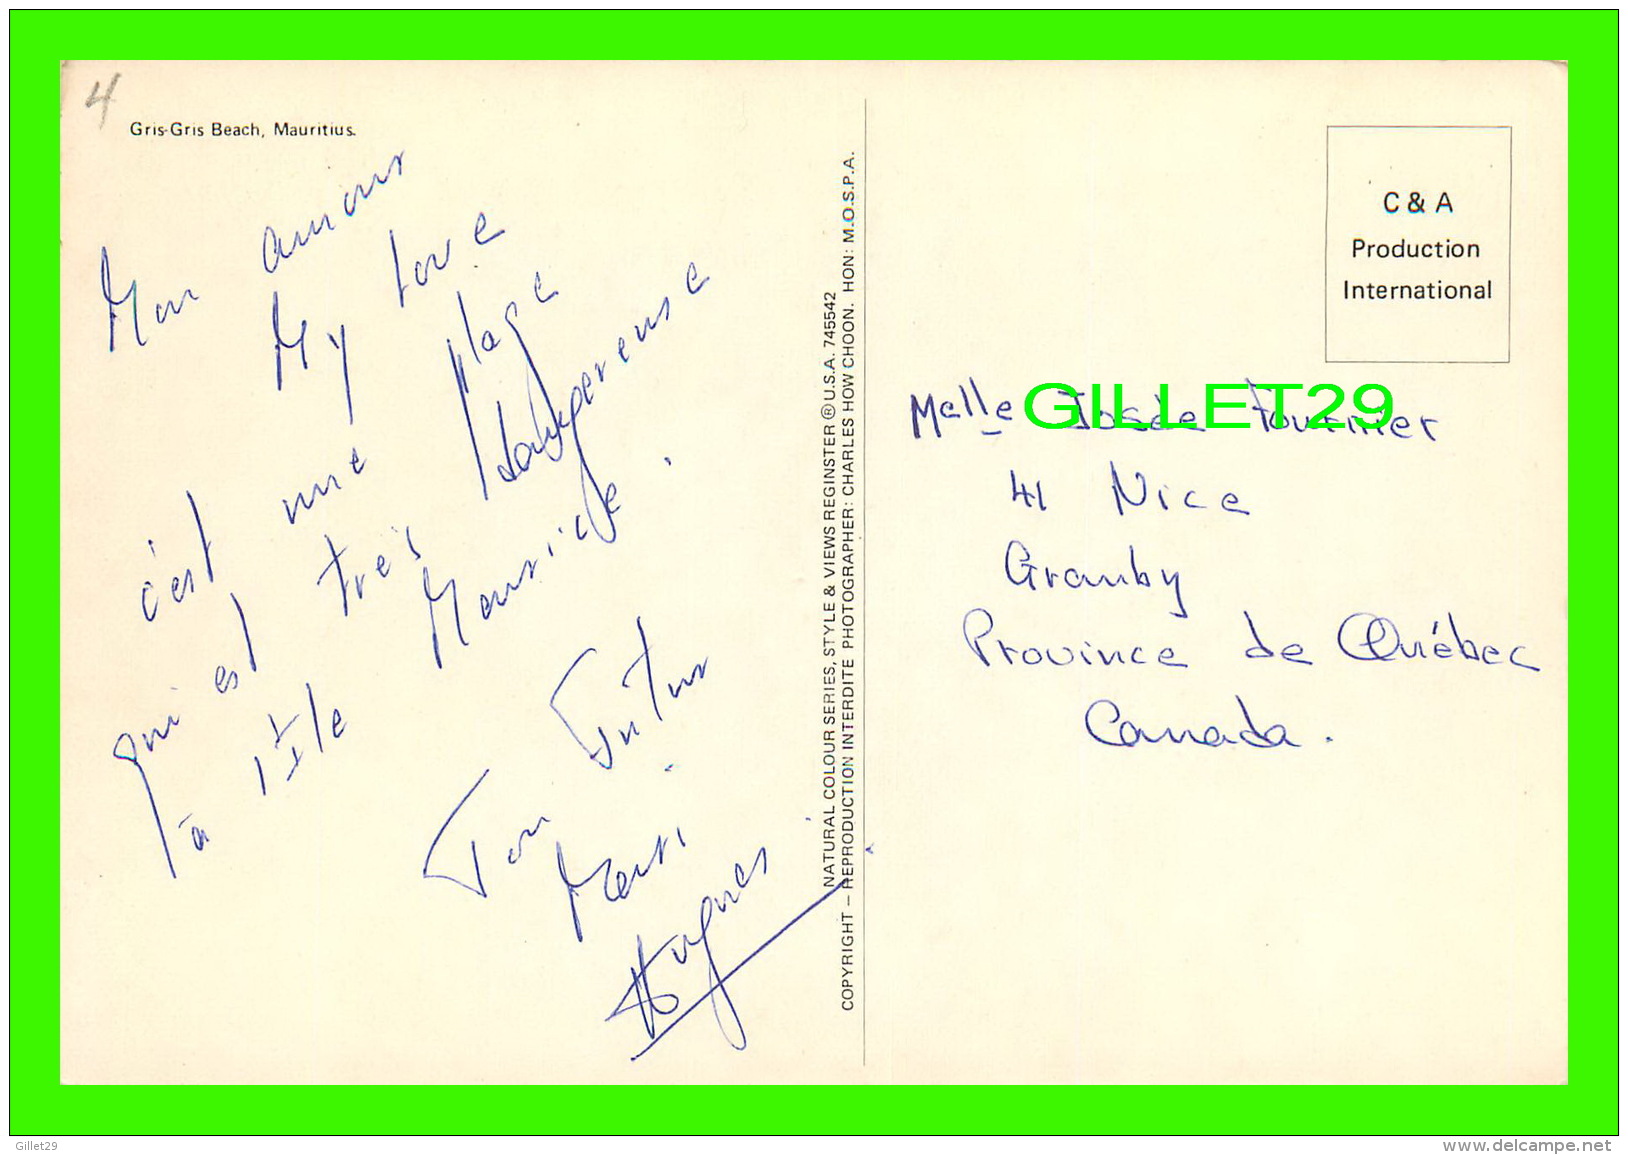 4
Gris-Gris Beach, Mauritius.
Mon amour
My love
c'est une plage
qui est très dangereuse
à l'Île Maurice.
Ton Futur
Mari.
Hugues
NATURAL COLOUR SERIES, STYLE & VIEWS REGINSTER ® U.S.A. 745542
COPYRIGHT – REPRODUCTION INTERDITE PHOTOGRAPHER: CHARLES HOW CHOON. HON: M.O.S.P.A.
C & A
Production
International
Melle Josée Fournier
GILLET29
41 Nice
Granby
Province de Québec
Canada.
Gillet29
www.delcampe.net